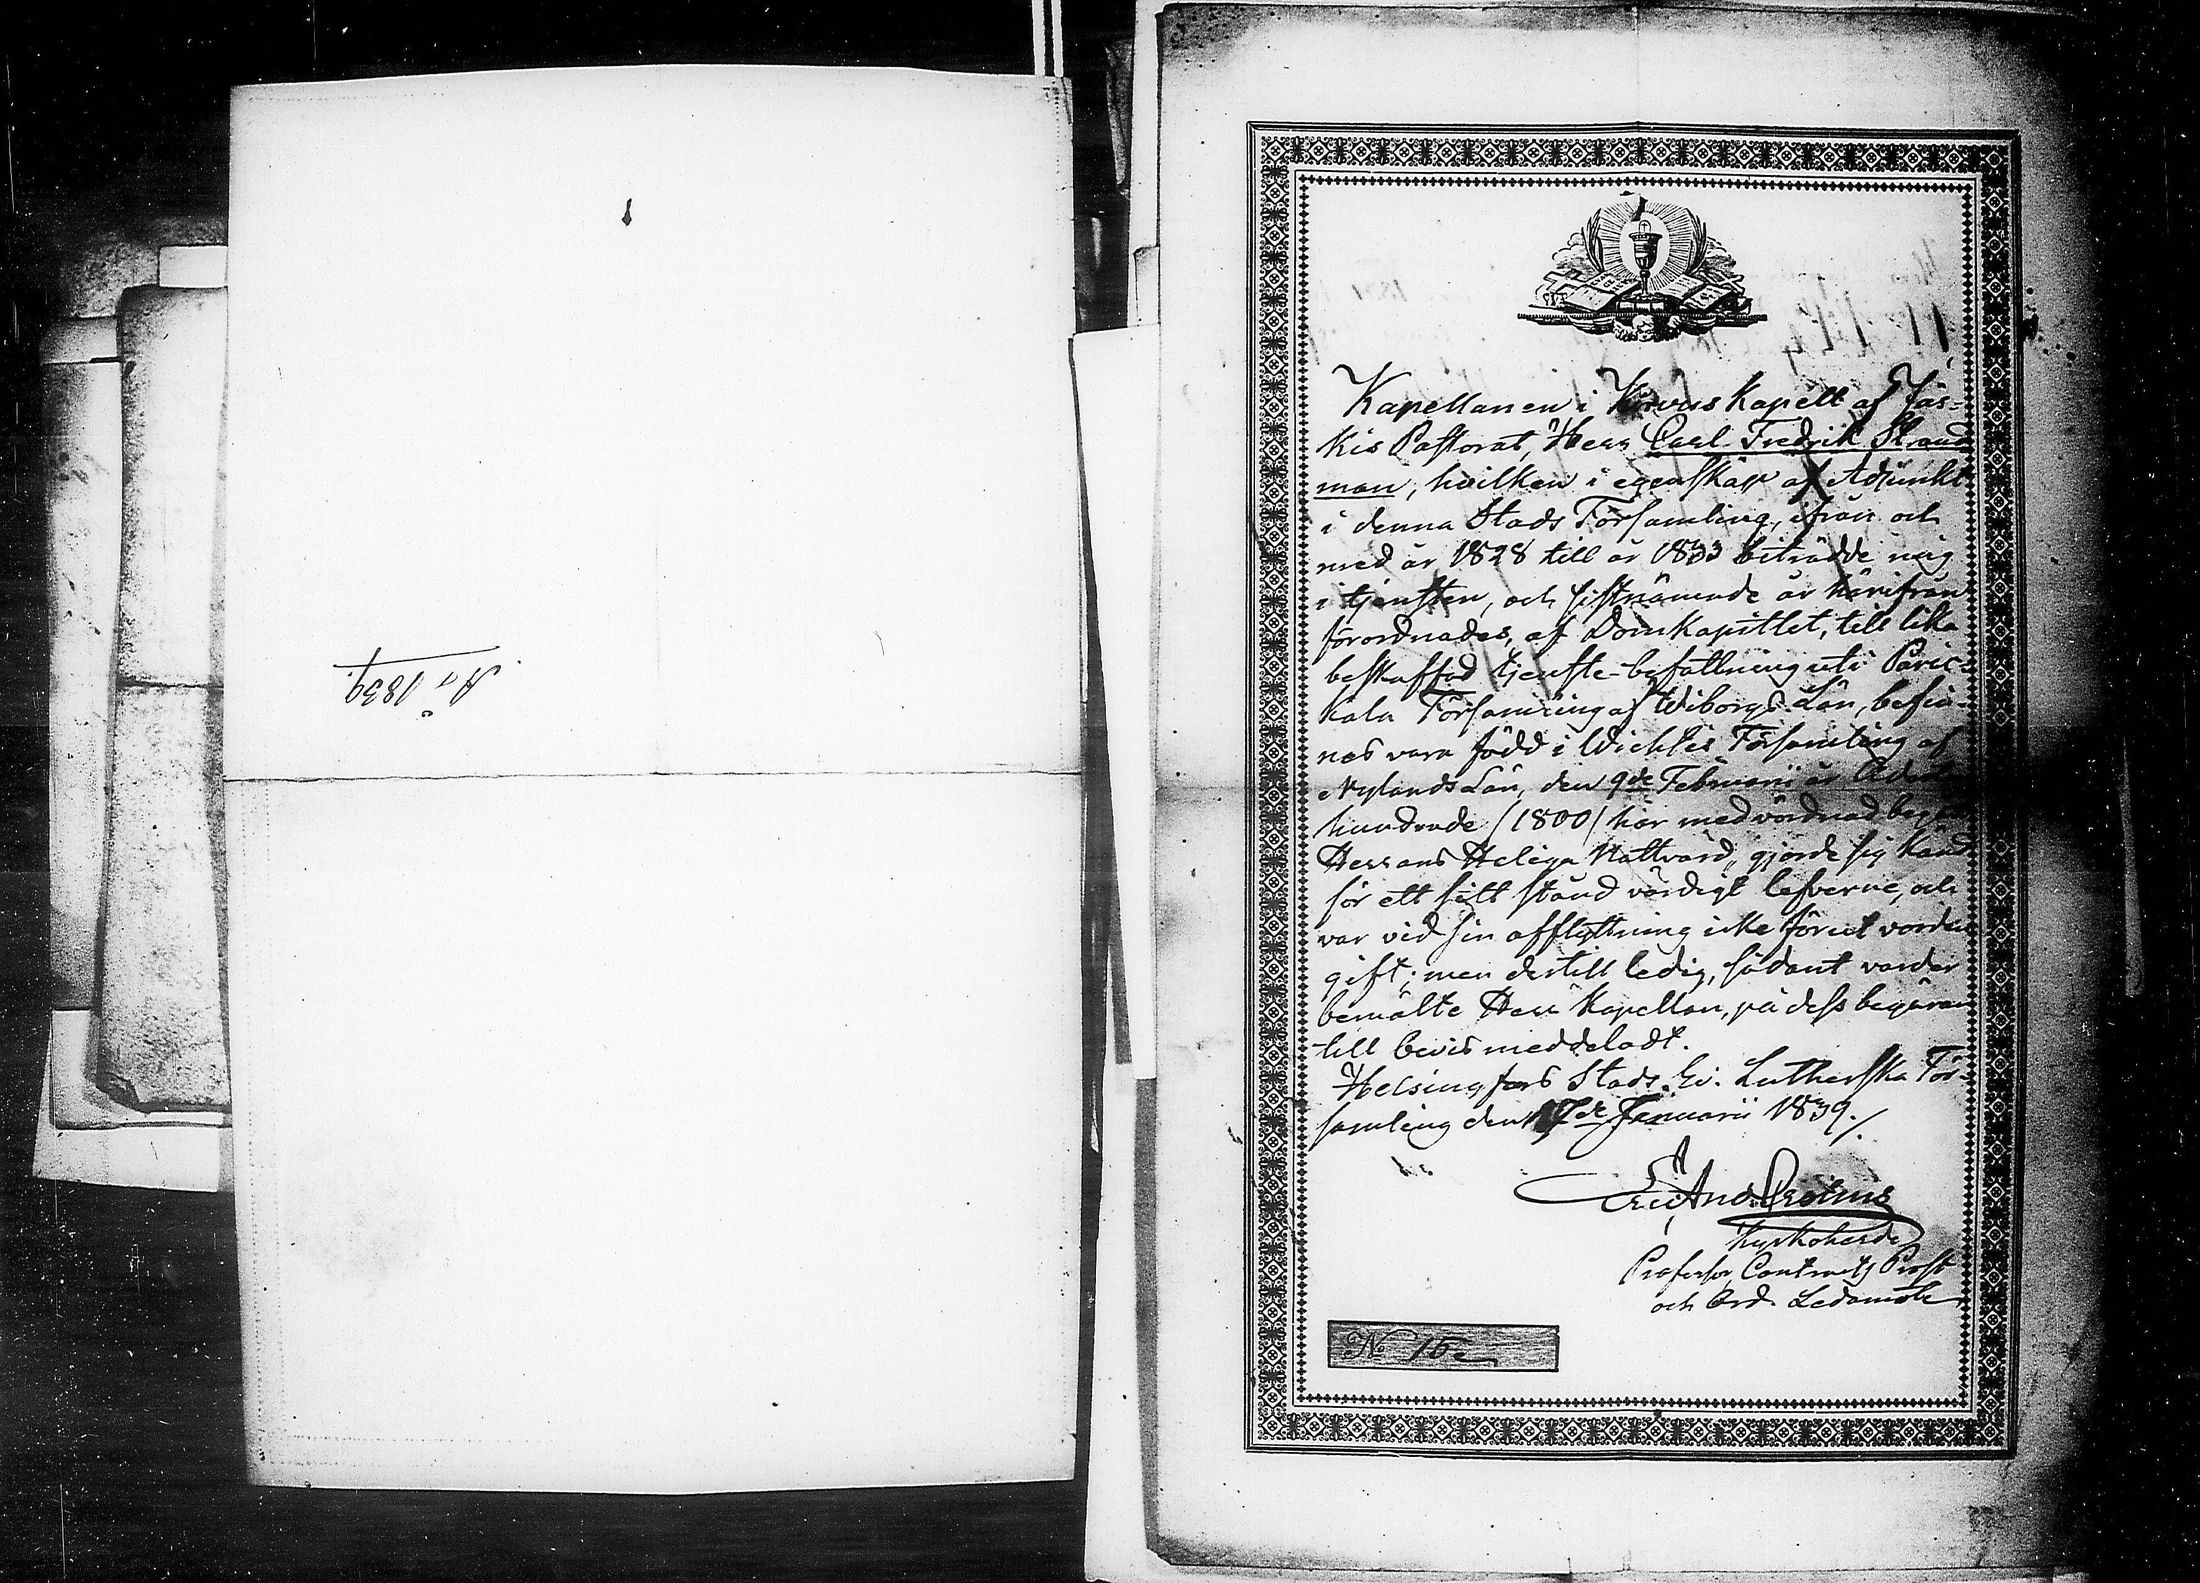 År 1839.
Kapellanen i Kirvus Kapell af Jäs-
kis Pastorat, Herr Carl Fredrik Strand
man, hvilken i egenskap af Adjunkt
i denna Stads Församling, ifrån och
med år 1828 till år 1833 biträdde mig
i tjensten, och sistnämnde år härifrån
förordnades, af Domkapitlet, till lika
beskaffad tjenste-befattning uti Paric-
kala Församling af Wiborgs Län, befin-
nes vara född i Wichtis Församling af
Nylands Län, den 9de Februarii år Aderton
hundrade (1800) har med vördnad begått
Herrans Heliga Nattvard, gjorde sig känd
för ett sitt stånd värdigt lefverne, och
var vid sin afflyttning icke förut vorden
gift; men dertill ledig, sådant varder
bemälte Herr Kapellan, på dess begäran
till bevis meddeladt.
Helsingfors Stads Ev. Lutherska För-
samling den 17de Januarii 1839.
Eric And. Crohns
Kyrkoherde
Professor, Contracts Prost
och Ord. Ledamot
No 15